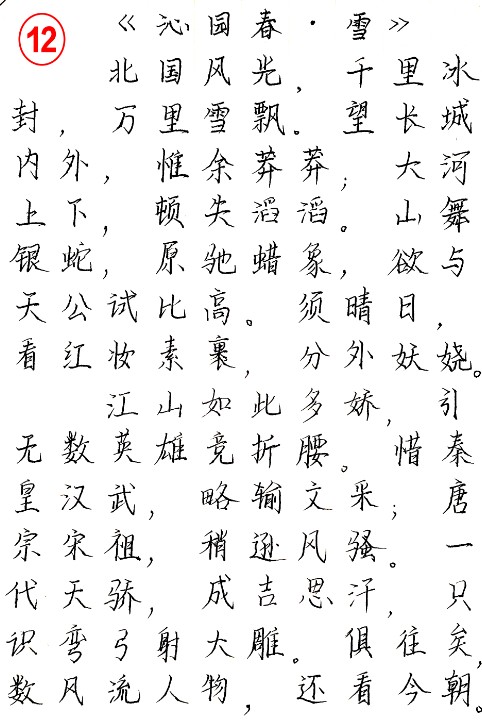 12
《沁园春·雪》
北国风光，千里冰
封，万里雪飘。望长城
内外，惟余莽莽；大河
上下，顿失滔滔。山舞
银蛇，原驰蜡象，欲与
天公试比高。须晴日，
看红妆素裹，分外妖娆。
江山如此多娇，引
无数英雄竞折腰。惜秦
皇汉武，略输文采；唐
宗宋祖，稍逊风骚。一
代天骄，成吉思汗，只
识弯弓射大雕。俱往矣，
数风流人物，还看今朝。